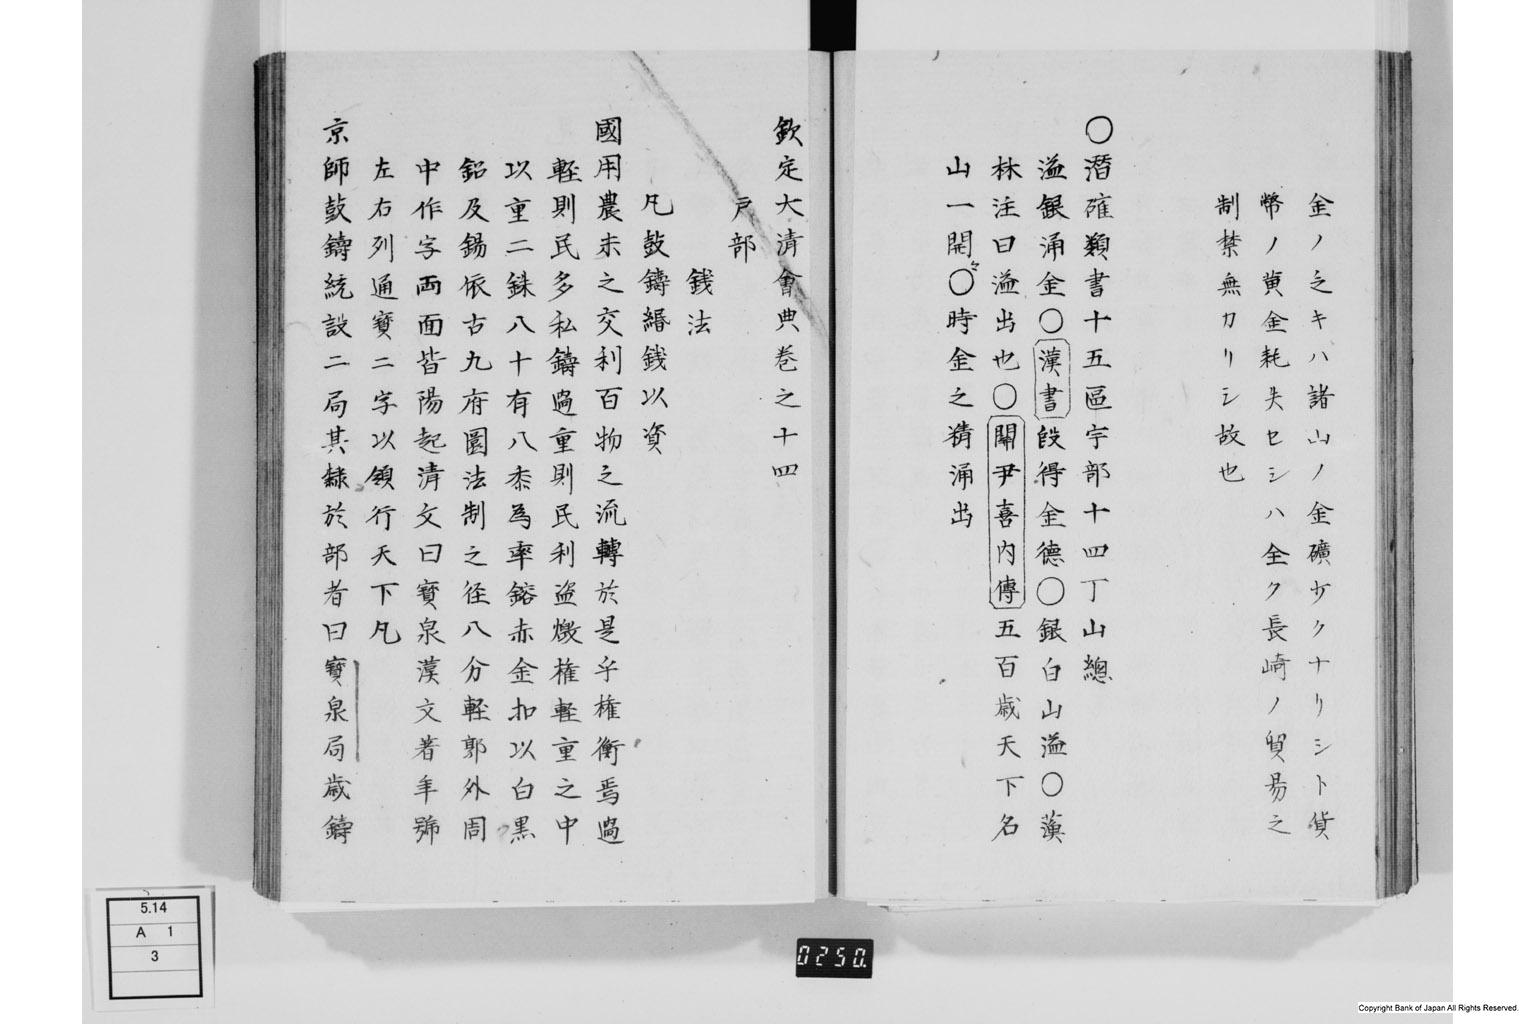 金ノ乏キハ諸山ノ金礦少クナリシト貨
幣ノ黄金耗失セシハ全ク長崎ノ貿易之
制禁無カリシ故也
〇潛確類書十五區宇部十四丁山總
溢銀涌金〇漢書殷得金德〇銀自山溢〇漢
林注曰溢出也〇關尹喜内傳五百歳天下名
山一開〇時金之精涌出
欽定大清會典卷之十四
戸部
銭法
凡鼓鑄緡銭以資
國用農末之交利百物之流轉於是乎權衡焉過
軽則民多私鑄過重則民利盗燬権軽重之中
以重二銖八十有八黍為率鎔赤金扣以白黒
鉛及錫依古九府圜法制之径八分軽郭外周
中作字両面皆陽起清文曰寳泉漢文著年號
左右列通寳二字以頒行天下凡
京師鼓鑄統設二局其隸於部者曰寳泉局歳鑄
5.14
A 1
3
0250.
Copyright Bank of Japan All Rights Reserved.